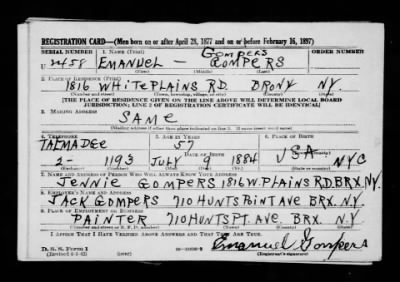 REGISTRATION CARD—(Men born on or after April 28, 1877 and on or before February 16, 1897)
SERIAL NUMBER 1. NAME (Print) ORDER NUMBER
GOMPERS
U 2458 EMANUEL - GOMPERS
(First) (Middle) (Last)
2. PLACE OF RESIDENCE (Print)
1816 WHITE PLAINS RD. BRONX N.Y.
(Number and street) (Town, township, village, or city) (County) (State)
[THE PLACE OF RESIDENCE GIVEN ON THE LINE ABOVE WILL DETERMINE LOCAL BOARD
JURISDICTION; LINE 2 OF REGISTRATION CERTIFICATE WILL BE IDENTICAL]
3. MAILING ADDRESS
SAME
[Mailing address if other than place indicated on line 2. If same insert word same]
4. TELEPHONE 5. AGE IN YEARS 6. PLACE OF BIRTH
TALMADGE 57
DATE OF BIRTH USA
2- 1193 JULY 9 1884 NYC
(Exchange) (Number) (Mo.) (Day) (Yr.) (State or country)
7. NAME AND ADDRESS OF PERSON WHO WILL ALWAYS KNOW YOUR ADDRESS
JENNIE GOMPERS 1816 W. PLAINS RD. BRX. N.Y.
8. EMPLOYER'S NAME AND ADDRESS
JACK GOMPERS 710 HUNTS POINT AVE BRX. N.Y.
9. PLACE OF EMPLOYMENT OR BUSINESS
PAINTER 710 HUNTS PT. AVE. BRX. N.Y
(Number and street or R. F. D. number) (Town) (County) (State)
I AFFIRM THAT I HAVE VERIFIED ABOVE ANSWERS AND THAT THEY ARE TRUE.
D. S. S. Form 1
(Revised 4-1-42) (over) Emanuel Gompers
(Registrant's signature)